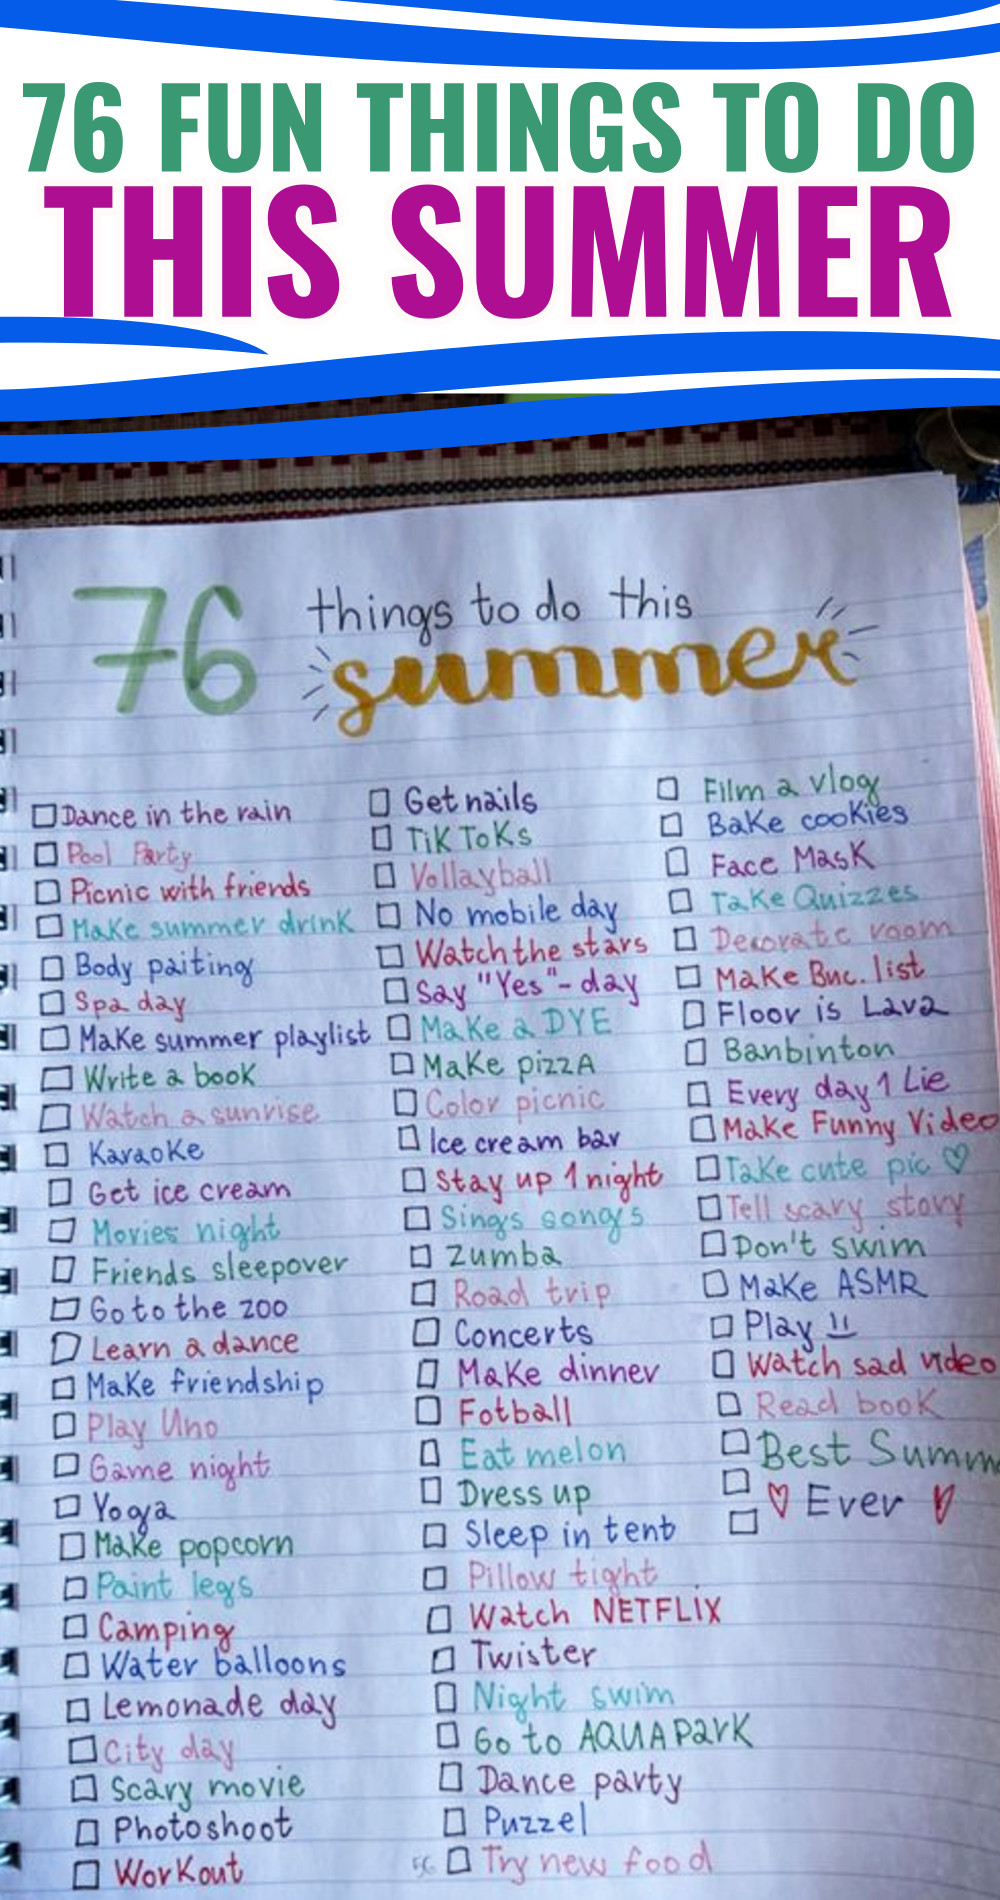 76 FUN THINGS TO DO
THIS SUMMER
76 things to do this
summer
Dance in the rain
Pool Party
Picnic with friends
Make summer drink
Body paiting
Spa day
Make summer playlist
Write a book
Watch a sunrise
Karaoke
Get ice cream
Movies night
Friends sleepover
Go to the zoo
Learn a dance
Make friendship
Play Uno
Game night
Yoga
Make popcorn
Paint legs
Camping
Water balloons
Lemonade day
City day
Scary movie
Photoshoot
Workout
Get nails
TikToKs
Vollayball
No mobile day
Watch the stars
Say "Yes"- day
Make a DYE
Make pizzA
Color picnic
Ice cream bar
Stay up 1 night
Sings songs
Zumba
Road trip
Concerts
Make dinner
Fotball
Eat melon
Dress up
Sleep in tent
Pillow tight
Watch NETFLIX
Twister
Night swim
Go to AQUAPark
Dance party
Puzzel
Try new food
Film a vlog
Bake cookies
Face Mask
Take Quizzes
Decorate room
Make Buc. list
Floor is Lava
Banbinton
Every day 1 Lie
Make Funny Video
Take cute pic ♡
Tell scary story
Don't swim
Make ASMR
Play !!
Watch sad video
Read book
Best Summ
♡ Ever ♡